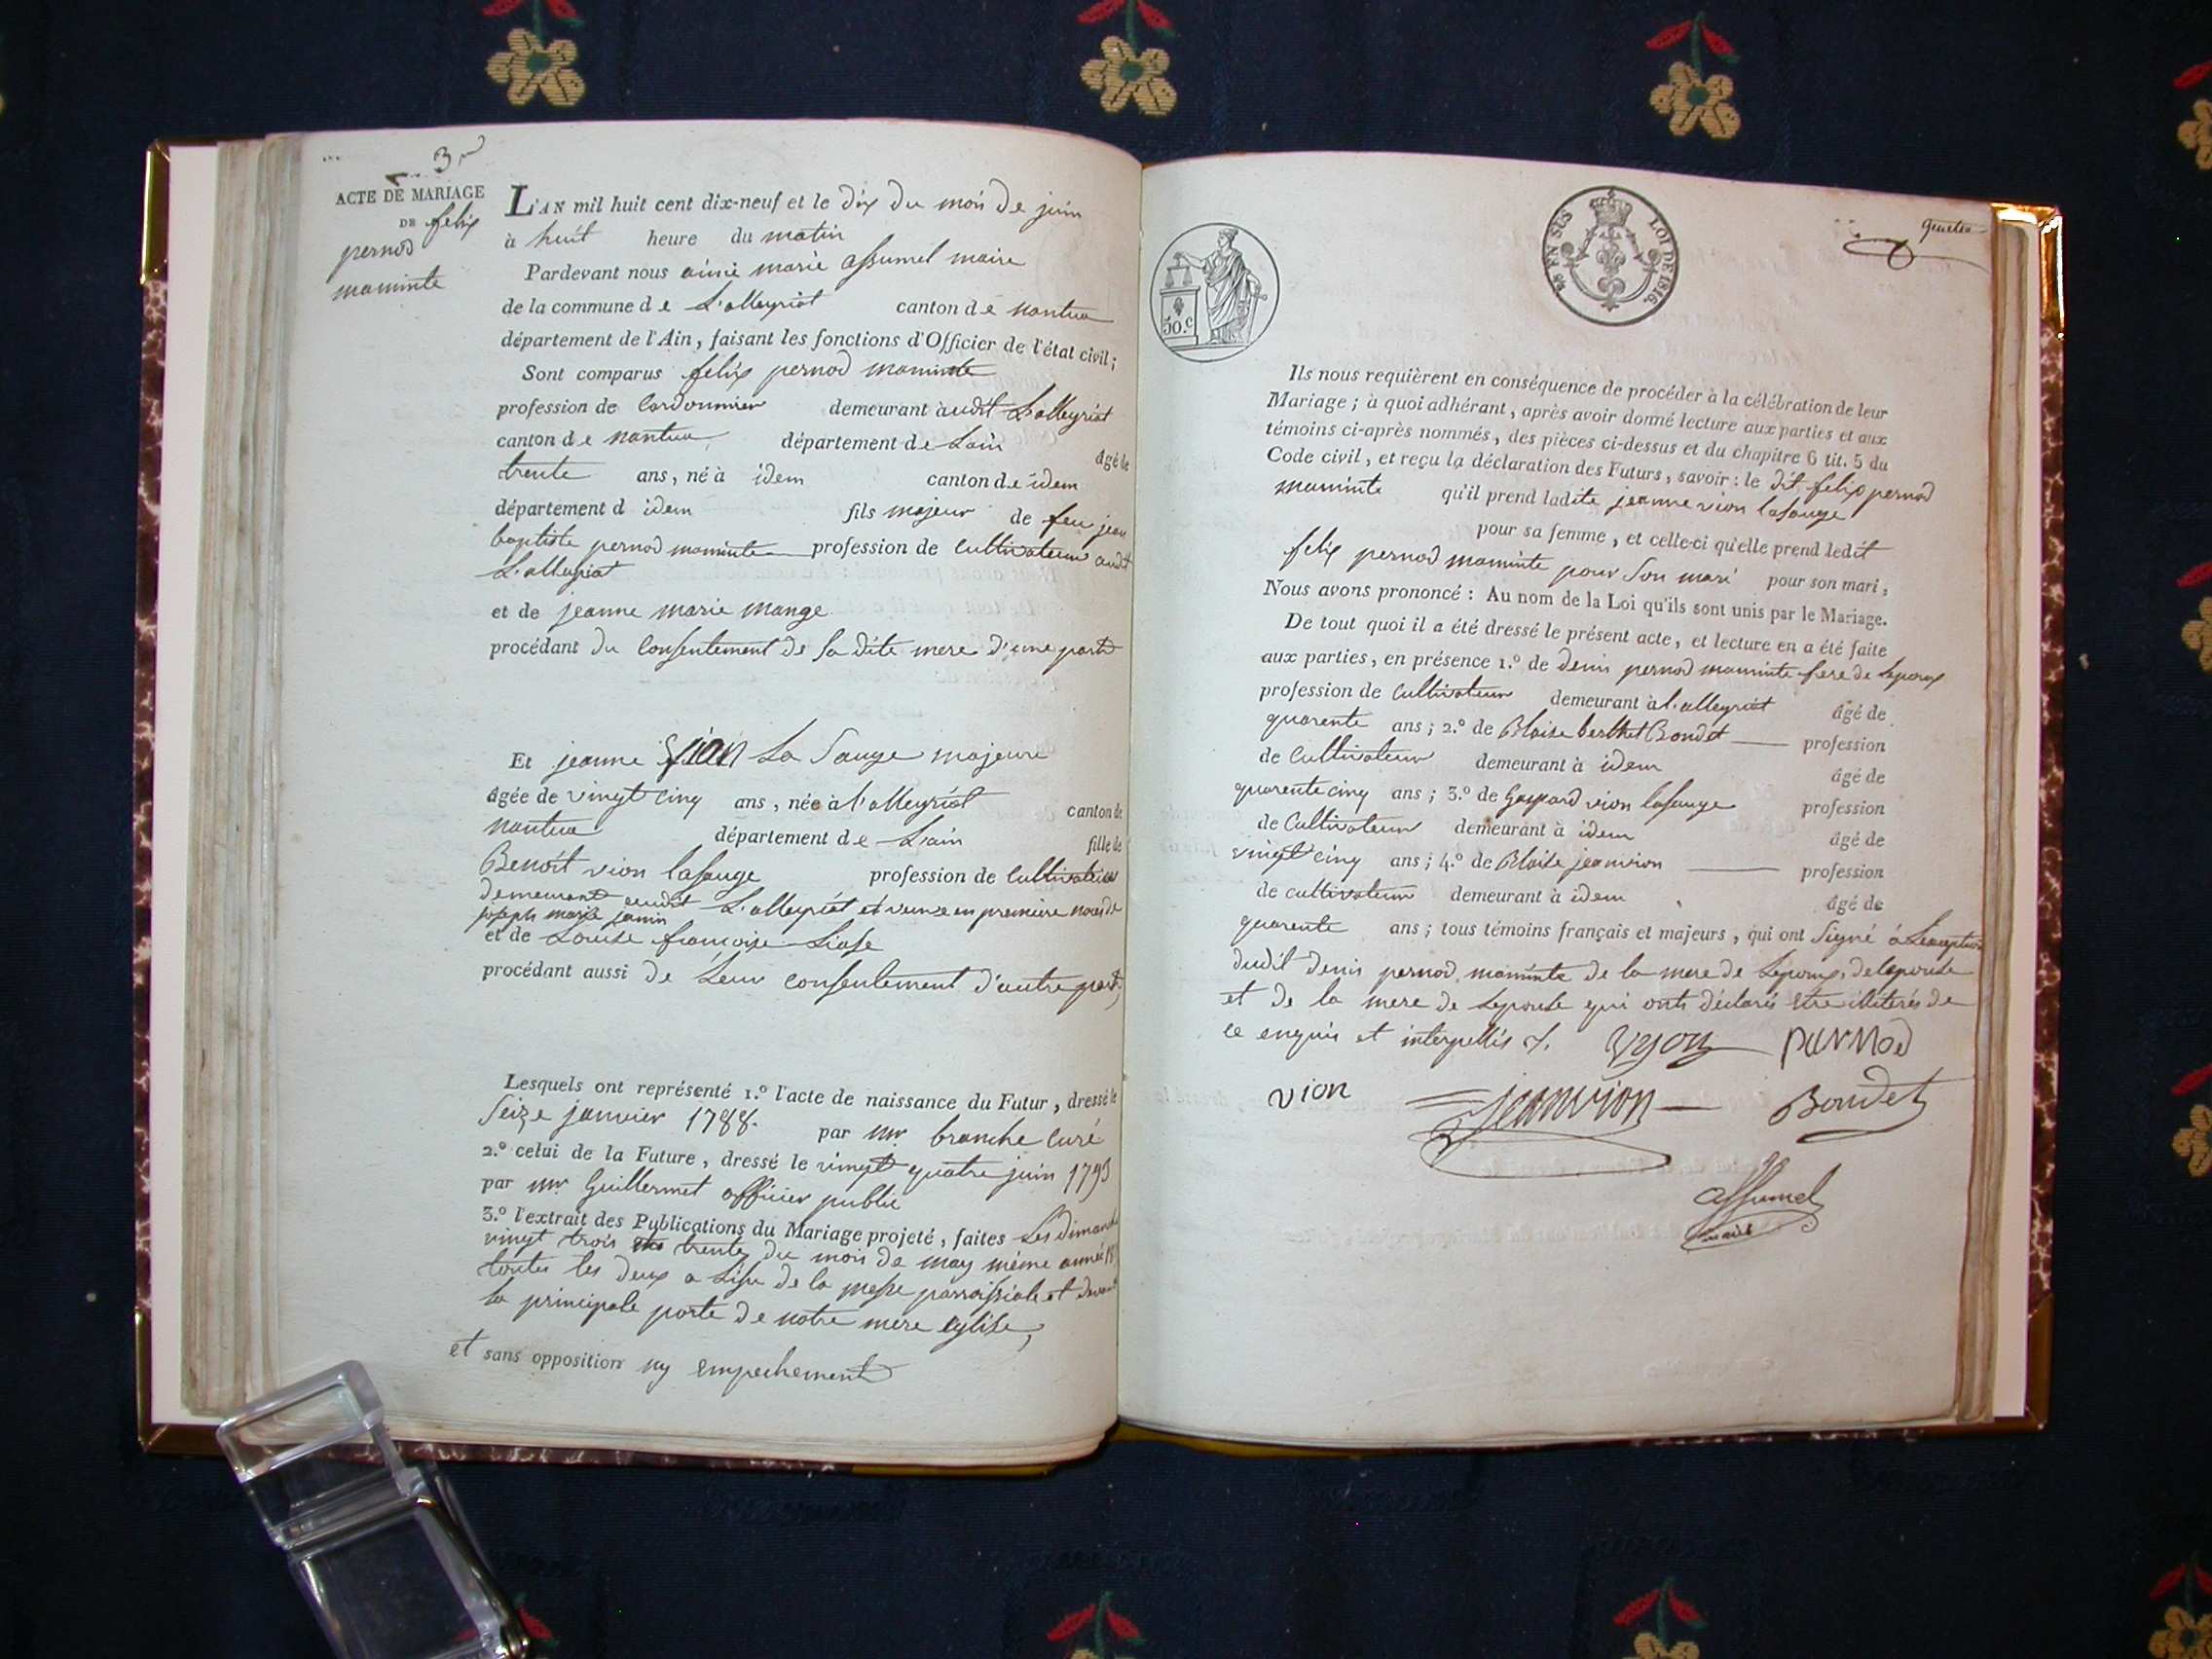 3
ACTE DE MARIAGE
DE felix
pernod
maminte
L'AN mil huit cent dix-neuf et le dix du mois de juin
à huit heure du matin
Pardevant nous aimé marie assumel maire
de la commune de L'alleyriat canton de nantua
département de l'Ain, faisant les fonctions d'Officier de l'état civil;
Sont comparus felix pernod maminte
profession de Cordonnier demeurant audit L'alleyriat
canton de nantua département de Lain âgé de
trente ans, né à idem canton de idem
département d idem fils majeur de feu jean
baptiste pernod maminte profession de Cultivateur audit
L'alleyriat
et de jeanne marie mange
procédant du Consentement de sa dite mere d'une part
Et jeanne vion La Sauge majeure
âgée de vingt cinq ans, née à l'alleyriat canton de
nantua département de Lain fille de
Benoit vion lasauge profession de Cultivateur
demeurant audit L'alleyriat et veuve en premiere noces de
joseph marie jamin
et de Louise francoise Liase
procédant aussi de Leur Consentement d'autre part,
Lesquels ont représenté 1.º l'acte de naissance du Futur, dressé le
Seize janvier 1788. par mr branche Curé
2.º celui de la Future, dressé le vingt quatre juin 1793
par mr Guillermet officier public
3.º l'extrait des Publications du Mariage projeté, faites Les dimanche
vingt trois trente du mois de may même année
toutes les deux a Lissu de la messe parroissiale et devant
la principale porte de notre mere eglise,
et sans opposition ny empechement
50.c
EN SUS LOI DE 1816.
Ils nous requièrent en conséquence de procéder à la célébration de leur
Mariage; à quoi adhérant, après avoir donné lecture aux parties et aux
témoins ci-après nommés, des pièces ci-dessus et du chapitre 6 tit. 5 du
Code civil, et reçu la déclaration des Futurs, savoir: le dit felix pernod
maminte qu'il prend ladite jeanne vion lasauge
pour sa femme, et celle-ci qu'elle prend ledit
felix pernod maminte pour Son mari pour son mari;
Nous avons prononcé: Au nom de la Loi qu'ils sont unis par le Mariage.
De tout quoi il a été dressé le présent acte, et lecture en a été faite
aux parties, en présence 1.º de denis pernod maminte frere de Lepoux
profession de Cultivateur demeurant à l'alleyriat âgé de
quarente ans; 2.º de Blaise berthet Bondet profession
de Cultivateur demeurant à idem âgé de
quarente cinq ans; 3.º de Gaspard vion lasauge profession
de Cultivateur demeurant à idem âgé de
vingt cinq ans; 4.º de Blaise jeanvion profession
de cultivateur demeurant à idem âgé de
quarente ans; tous témoins français et majeurs, qui ont Signé à Lexception
dudit denis pernod maminte de la mere de Lepoux, de lepouse
et de la mere de Lepouse qui onts déclarés etre illiterés de
ce enquis et interpellés
vyon
pernod
vion
jeanvion
Bondet
assumel
maire